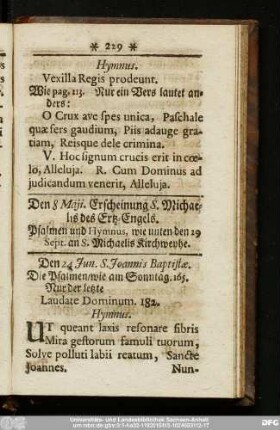 * 229 *
Hymnus.
Vexilla Regis prodeunt.
Wie pag. 213. Nur ein Vers lautet an-
ders:
O Crux ave spes unica, Paschale
quæ fers gaudium, Piis adauge gra-
tiam, Reisque dele crimina.
V. Hoc signum crucis erit in cœ-
lo, Alleluja. R. Cum Dominus ad
judicandum venerit, Alleluja.
Den 8 Maji. Erscheinung S. Michae-
lis des Ertz-Engels.
Psalmen und Hymnus, wie unten den 29
Sept. an S. Michaelis Kirchweyhe.
Den 24 Jun. S. Joannis Baptistæ.
Die Psalmen/wie am Sonntag. 165.
Nur der letzte
Laudate Dominum. 182.
Hymnus.
UT queant laxis resonare fibris
Mira gestorum famuli tuorum,
Solve polluti labii reatum, Sancte
Joannes. Nun-
Universitäts- und Landesbibliothek Sachsen-Anhalt